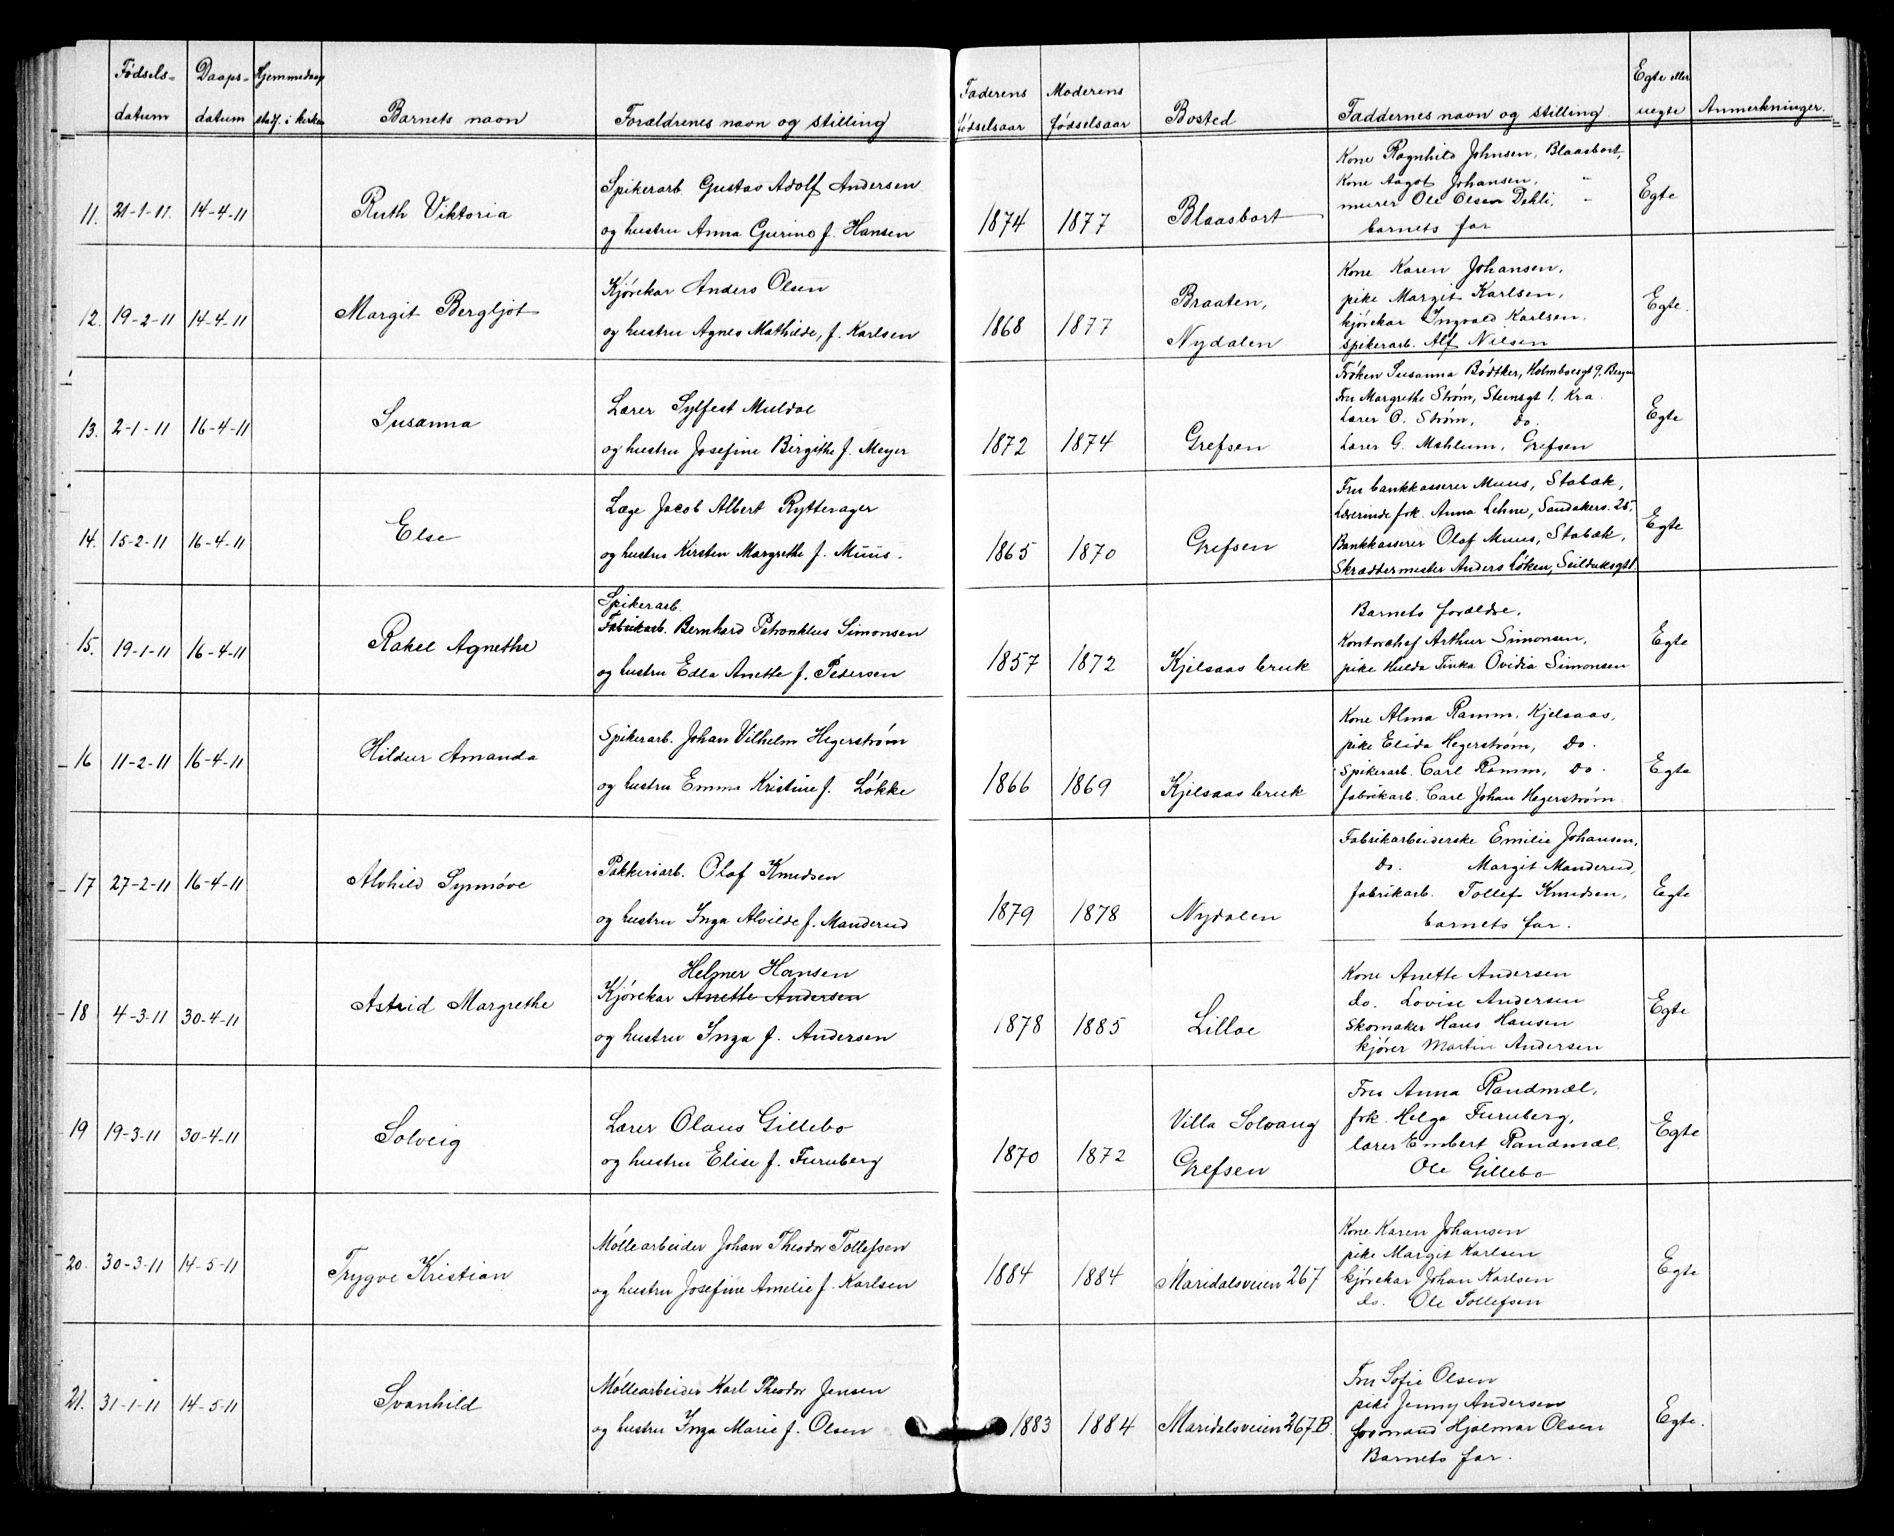 Fødsels-
datum
Daaps-
datum
Hjemmedaap
stadf. i kirken
Barnets navn
Forældrenes navn og stilling
Faderens
fødselsaar
Moderens
fødselsaar
Bosted
Faddernes navn og stilling
Egte eller
uegte
Anmerkninger.
11. 21-1-11. 14-4-11 Ruth Viktoria
Spikerarb. Gustav Adolf Andersen
og hustru Anna Gurine f. Hansen
1874 1877 Blaasbort
Kone Ragnhild Johnsen, Blaasbort,
Kone Aagot Johansen, "
murer Ole Olsen Dehli, "
barnets far
Egte
12. 19-2-11 14-4-11 Margit Bergljot
Kjørekar Anders Olsen
og hustru Agnes Mathilde, f. Karlsen
1868 1877 Braaten,
Nydalen
Kone Karen Johansen,
pike Margit Karlsen,
kjørekar Ingvald Karlsen,
spikerarb. Alf Nilsen
Egte.
13. 2-1-11 16-4-11 Susanna
Lærer Sylfest Muldal
og hustru Josefine Birgithe f. Meyer
1872 1874 Grefsen
Frøken Susanna Bødtker, Holmboesgt 9, Bergen
Fru Margrethe Strøm, Stensgt 1. Kra.
Lærer O. Strøm, do.
Lærer G. Mæhlum, Grefsen
Egte
14. 15-2-11 16-4-11 Else
Læge Jacob Albert Rytterager
og hustru Kirsten Margrethe f. Muus.
1865 1870 Grefsen
Fru bankkasserer Muus, Stabæk,
Lærerinde frk. Anna Lehne, Sandakerv. 25,
Bankkasserer Olaf Muus, Stabæk,
Skræddermester Anders Løken, Seilduksgt 1
Egte
15. 19-1-11 16-4-11 Rakel Agnethe
Spikerarb.
Fabrikarb. Bernhard Petronklus Simonsen
og hustru Edla Anette f. Pedersen
1857 1872 Kjelsaas bruk
Barnets forældre,
Kontorchef Arthur Simonsen,
pike Hulda Tinka Ovidia Simonsen
Egte
16 11-2-11 16-4-11 Hildur Amanda
Spikerarb. Johan Vilhelm Hegerstrøm
og hustru Emma Kristine f. Løkke
1866 1869 Kjelsaas bruk
Kone Alma Ramm, Kjelsaas,
pike Elida Hegerstrøm, do.
Spikerarb. Carl Ramm, do.
fabrikarb. Carl Johan Hegerstrøm
Egte
17 27-2-11 16-4-11 Alvhild Synnøve
Pakkeriarb. Olaf Knudsen
og hustru Inga Alvilde f. Manderud
1879 1878 Nydalen
Fabrikarbeiderske Emilie Johansen,
do. Margit Manderud,
fabrikarb. Tollef Knudsen,
barnets far.
Egte
18 4-3-11 30-4-11 Astrid Margrethe
Helmer Hansen
Kjørekar Anette Andersen
og hustru Inga f. Andersen
1878 1885 Lilloe
Kone Anette Andersen
do. Lovise Andersen
Skomaker Hans Hansen
kjører Martin Andersen
Egte
19 19-3-11 30-4-11 Solveig
Lærer Olaus Gillebo
og hustru Elise f. Furuberg
1870 1872 Villa Solvang
Grefsen
Fru Anna Randmæl,
frk. Helga Furuberg,
lærer Embert Randmæl.
Ole Gillebo
Egte
20. 30-3-11 14-5-11 Trygve Kristian
Møllearbeider Johan Theodor Tollefsen
og hustru Josefine Amelie f. Karlsen
1884 1884 Maridalsveien 267
Kone Karen Johansen
pike Margit Karlsen
kjørekar Johan Karlsen
do. Ole Tollefsen
Egte
21. 31-1-11 14-5-11 Svanhild
Møllearbeider Karl Theodor Jensen
og hustru Inga Marie f. Olsen
1883 1884 Maridalsveien 267B.
Fru Sofie Olsen
pike Jenny Andersen
formand Hjalmar Olsen
Barnets far.
Egte.